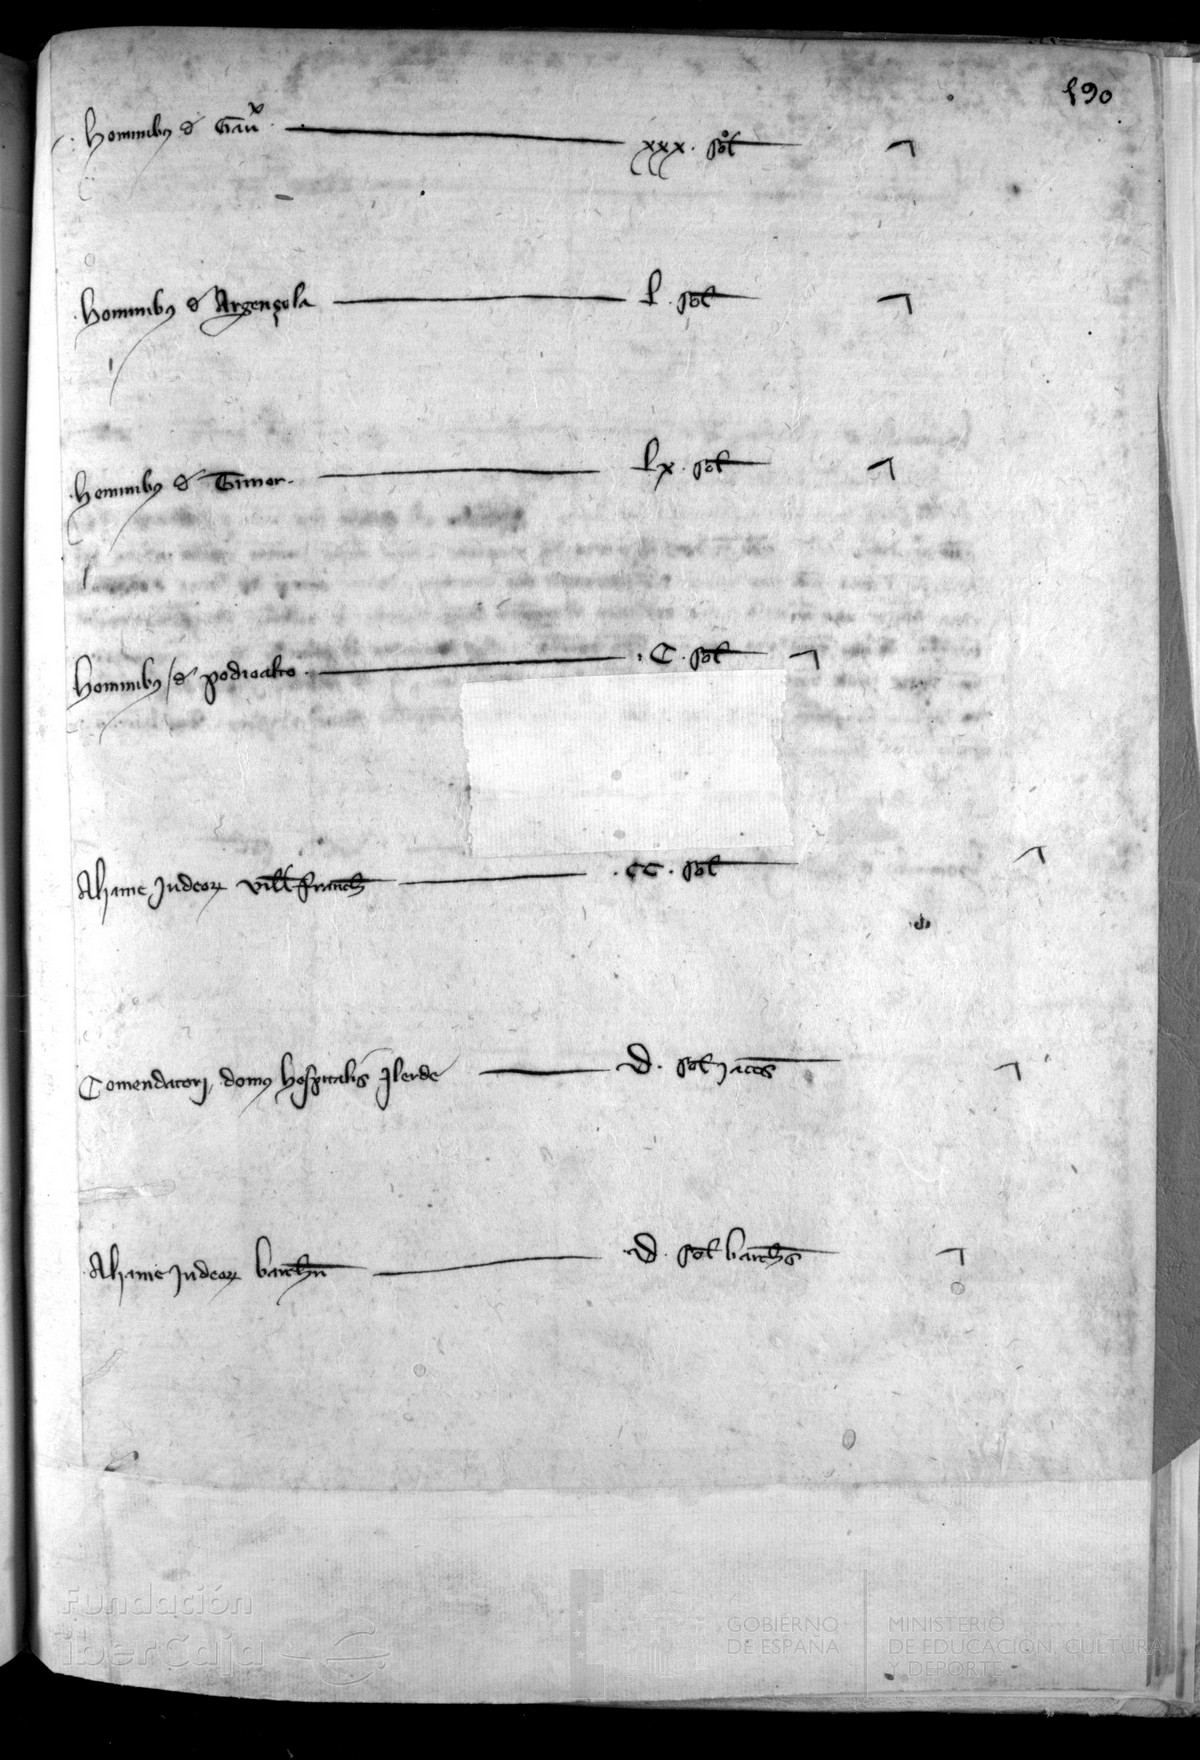 190
hominibus de Gau͂x xxx. sol
hominibus de Argençola l. sol
hominibus de Timor. lx. sol
hominibus de podioalto. C. sol
Aliame Judeorum vill franch .CC. sol
Comendatori domus hospitalis Ilerde D. sol iacces
Aliame Judeorum barchn D. sol barchs
Fundación
iberCaja
GOBIERNO
DE ESPAÑA
MINISTERIO
DE EDUCACIÓN, CULTURA
Y DEPORTE